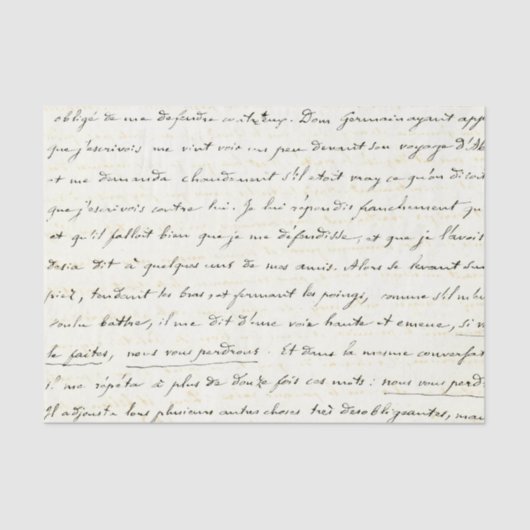 obligé de me defendre contr'eux. Dom Germain ayant app
que j'escrivois me vint voir un peu devant son voyage d'Al
et me demanda chaudement s'il etoit vray ce qu'on disoit
que j'escrivois contre lui. Je lui répondis franchement
et qu'il falloit bien que je me défendisse, et que je l'avois
desia dit à quelques uns de mes amis. Alors se levant sur
piez, tendant les bras, et fermant les poings, comme s'il m'eu
voulu battre, il me dit d'une voix haute et emeue, si v
le faites, nous vous perdrons. Et dans la mesme conversa
il me répéta à plus de douze fois ces mots: nous vous perd
Il adjousta tous plusieurs autres choses très desobligeantes, mai